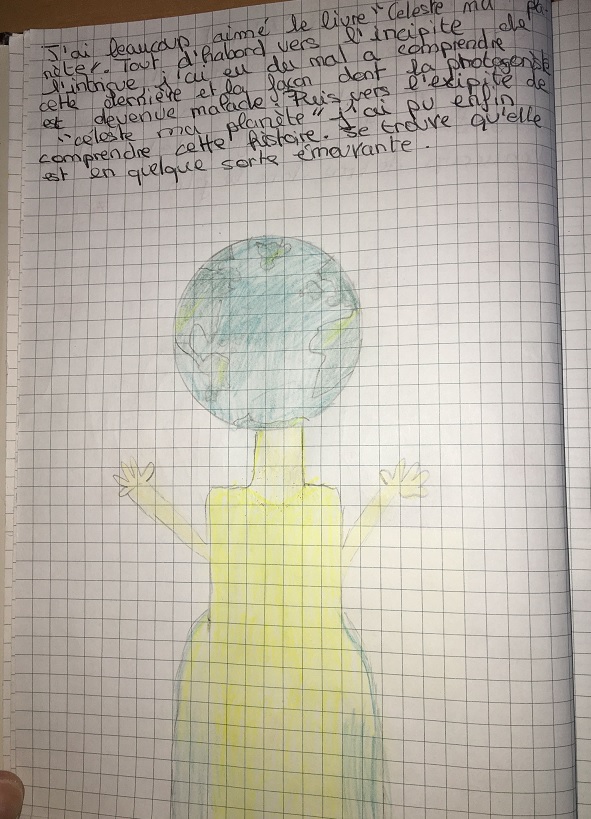 J'ai beaucoup aimé le livre "Celeste ma pa-
nèter. Tout d'habord vers l'incipite de
l'intrigue j'ai eu du mal a comprendre
cette dernière et la façon dont la photogoniste
est devenue malade. Puis vers l'exipite de
"celeste ma planète" j'ai pu enfin
comprendre cette histoire. Se trouve qu'elle
est en quelque sorte émouvante.